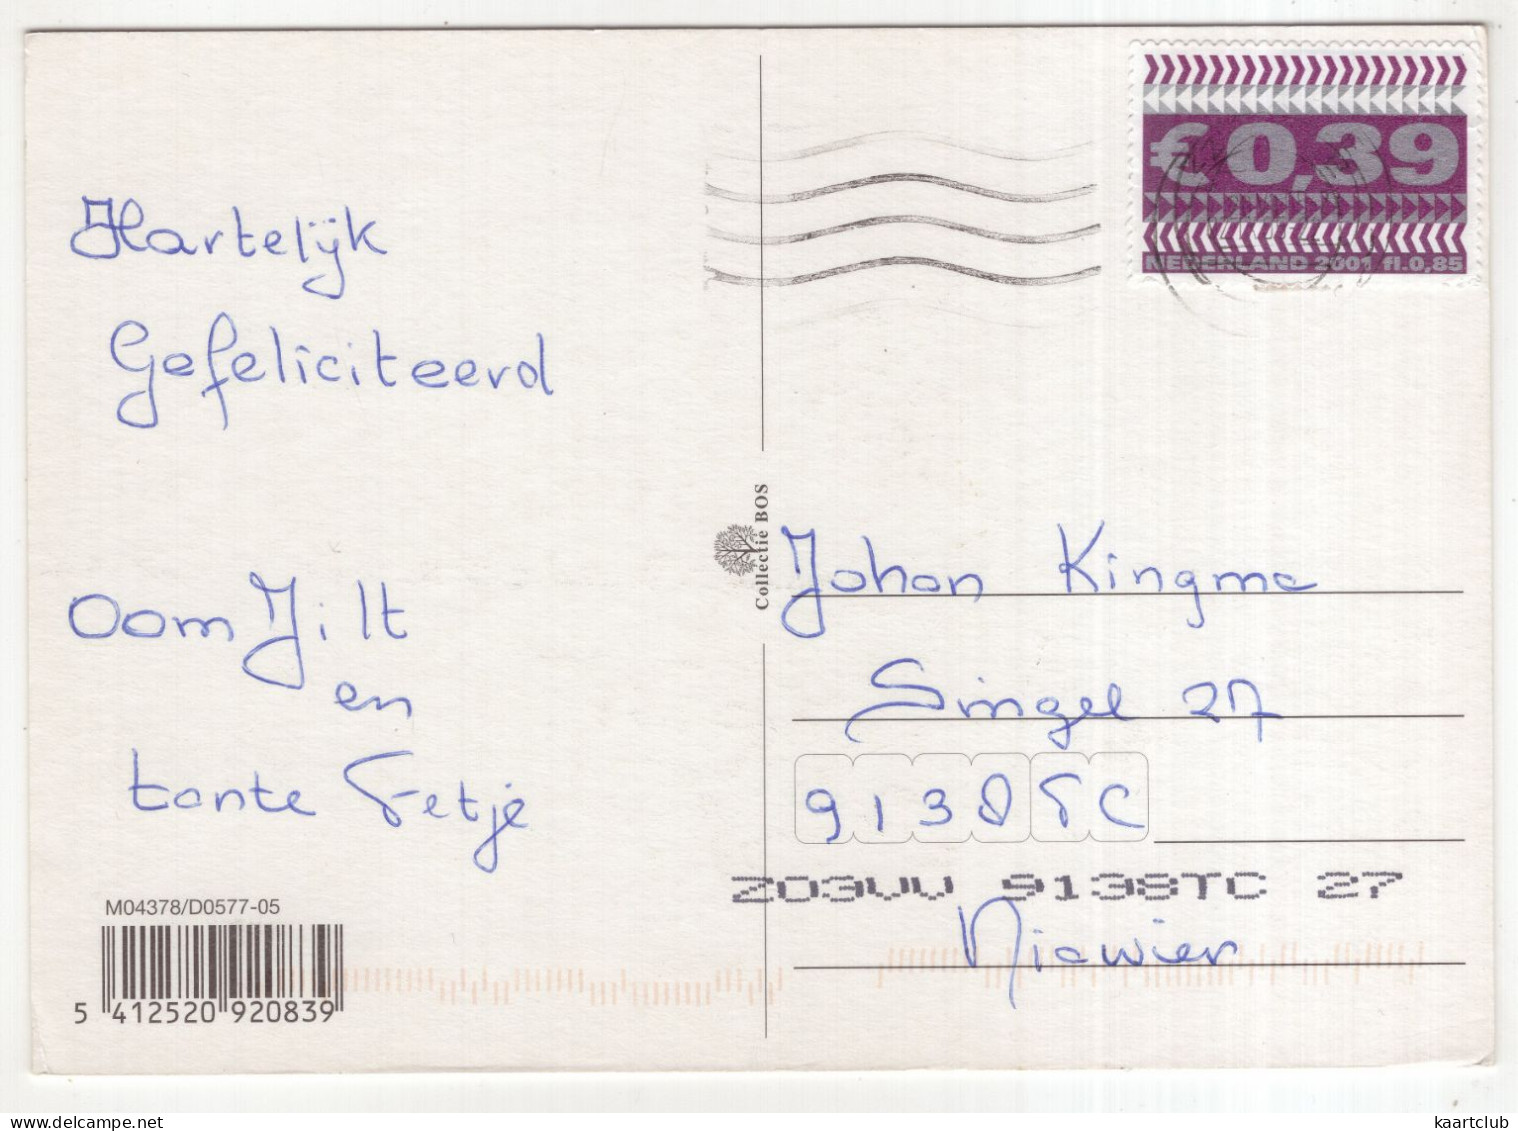 €0,39
NEDERLAND 2001 fl.0,85
Hartelijk
Gefeliciteerd
Oom Jilt
en
tante Fetje
Collectie BOS
Johan Kingma
Singel 27
9138TC
Z03VV 9138TC 27
Niawier
M04378/D0577-05
5 412520 920839
www.delcampe.net
kaartclub